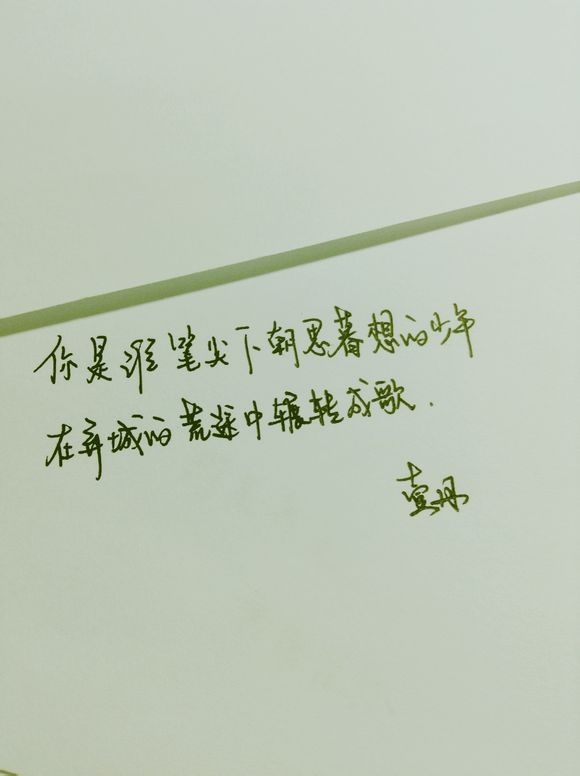 你是谁笔尖下朝思暮想的少年
在弃城的荒途中辗转成歌.